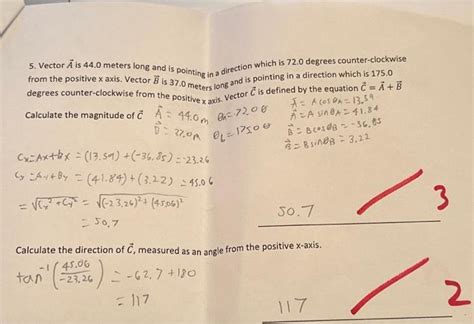 5. Vector A⃗ is 44.0 meters long and is pointing in a direction which is 72.0 degrees counter-clockwise
from the positive x axis. Vector B⃗ is 37.0 meters long and is pointing in a direction which is 175.0
degrees counter-clockwise from the positive x axis. Vector C⃗ is defined by the equation C⃗ = A⃗ + B⃗
Calculate the magnitude of C⃗
A⃗ = 44.0m θA=72.0
= 37.0m =175.0
A⃗ = A cos θA = 13.59
A⃗ = A sin θA = 41.84
B⃗ = B cos θB = -36.85
B⃗ = B sin θB = 3.22
Cx = Ax + Bx = (13.59) + (-36.85) = -23.26
Cy = Ay + By = (41.84) + (3.22) = 45.06
= √Cx² + Cy² = √(-23.26)² + (45.06)²
= 50.7
50.7
3
Calculate the direction of C⃗, measured as an angle from the positive x-axis.
tan⁻¹(45.06/-23.26) = -62.7 + 180
= 117
117
2